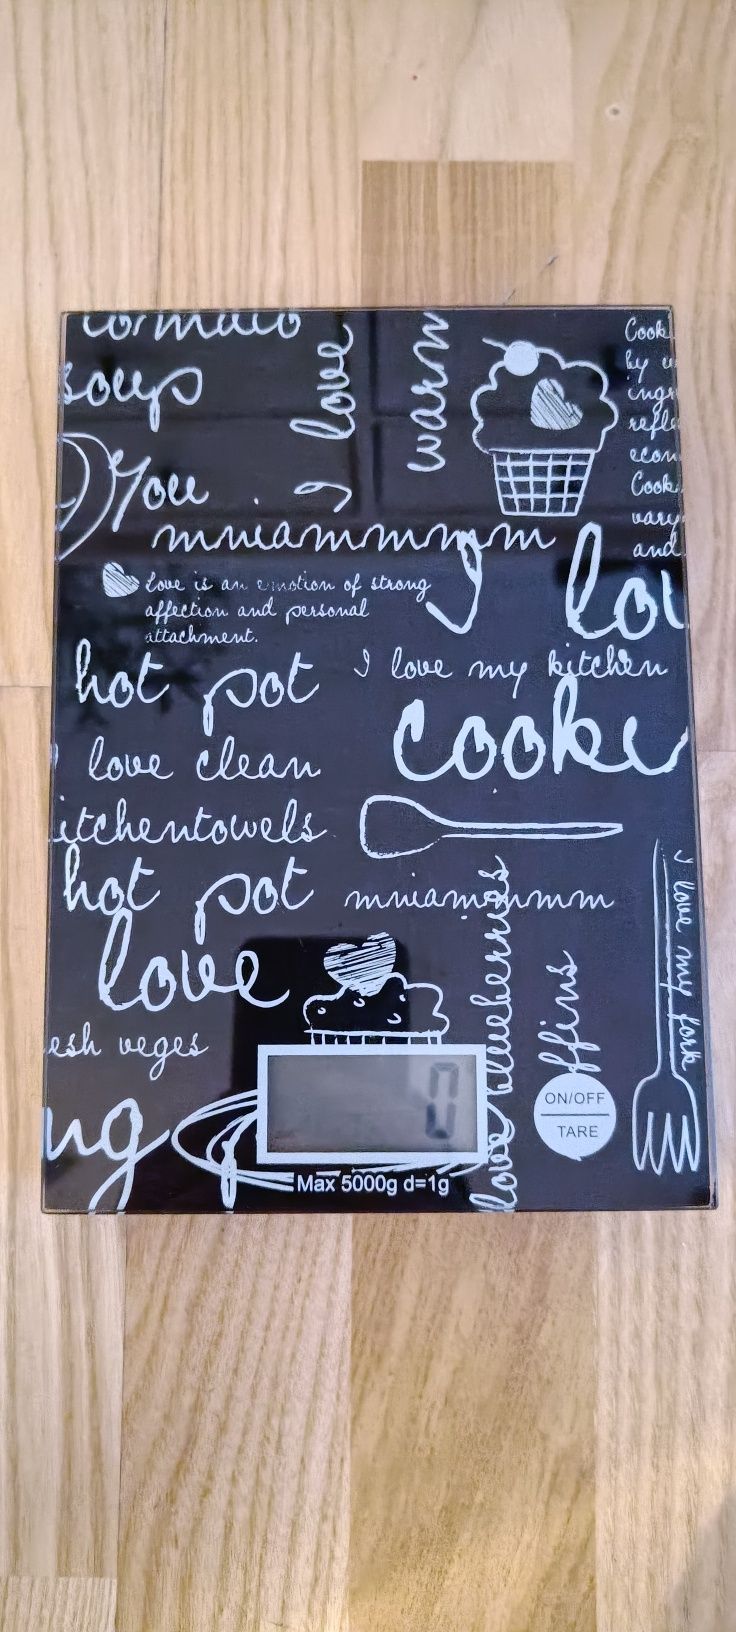 tomato
soup
I love
warm
You
mniammmmm
Cook
by
ingr
refle
econ
Cook
vary
and
love is an emotion of strong
affection and personal
attachment.
I lov
hot pot
I love my kitchen
cooki
love clean
itchentowels
hot pot
mniammmmm
love
love blueberries
ffins
I love my fork
esh veges
ng
0
ON/OFF
TARE
Max 5000g d=1g